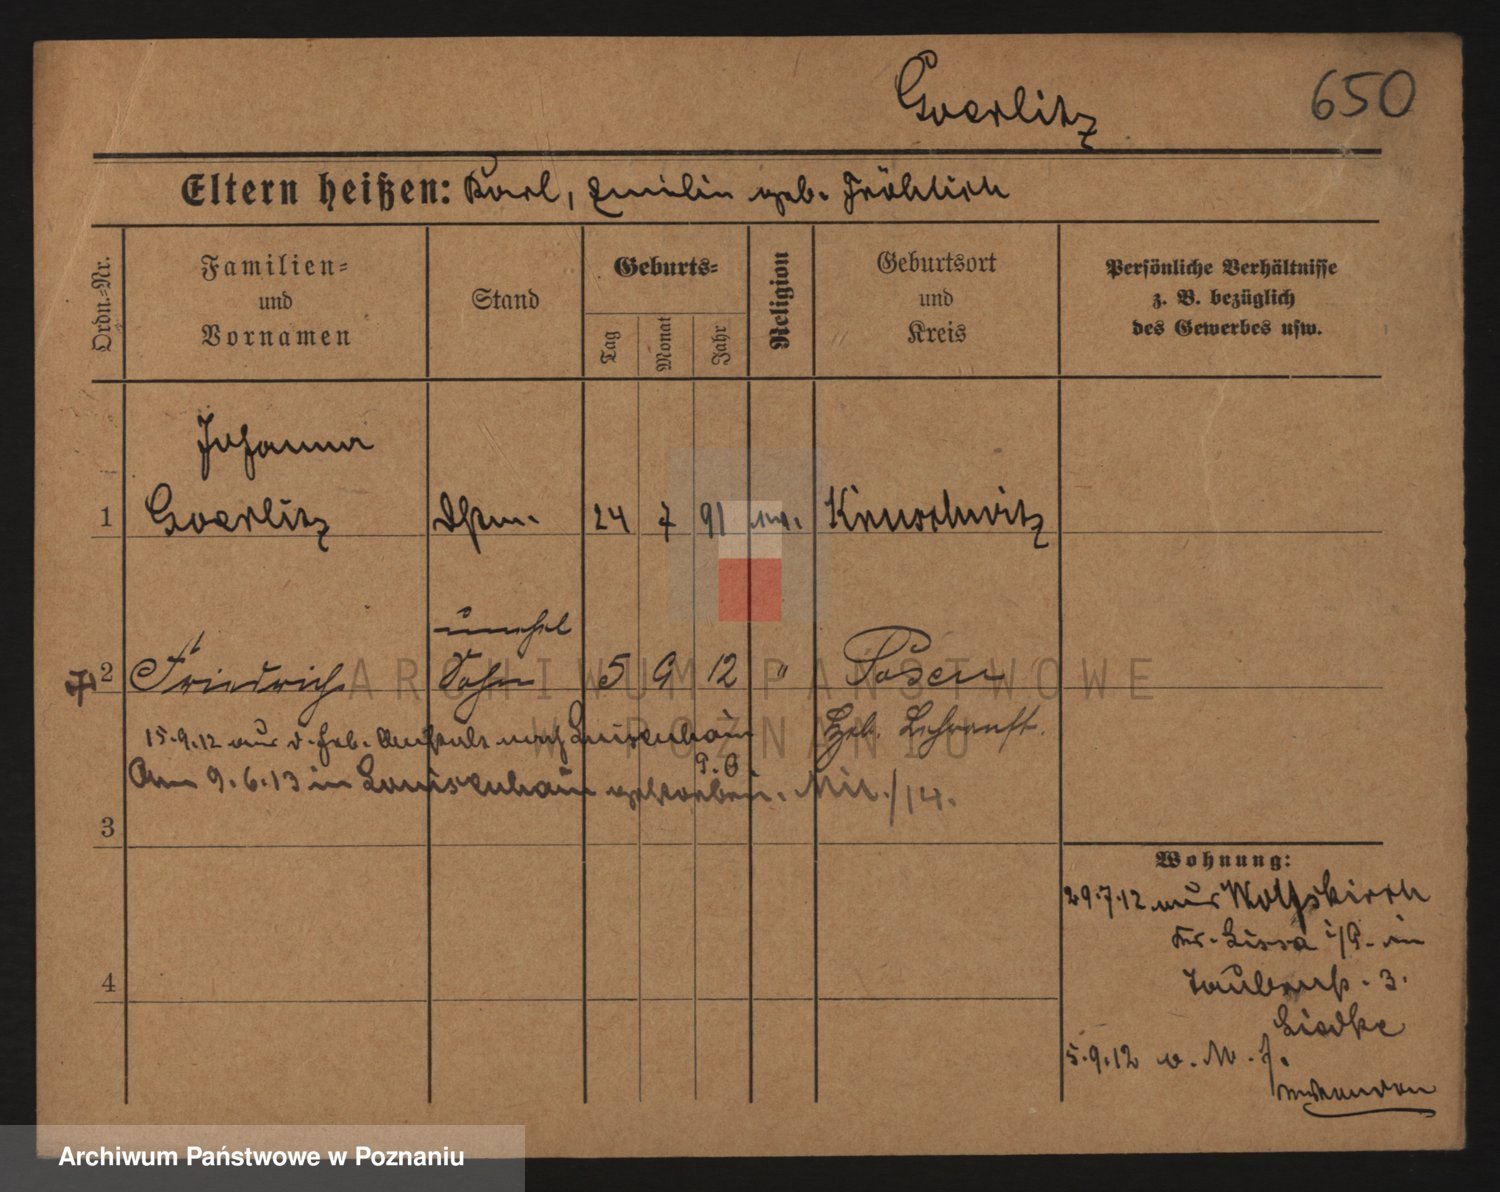 Goerlitz
650
Eltern heißen: Karl, Emilie geb. Fröhlich
Ordn.-Nr.
Familien-
und
Vornamen
Stand
Geburts-
Tag
Monat
Jahr
Religion
Geburtsort
und
Kreis
Persönliche Verhältnisse
z. B. bezüglich
des Gewerbes usw.
Johanna
1 Goerlitz 24 7 91 ev.
unehel
2 Friedrich Sohn 5 9 12 " Posen
15.9.12 aus d. Heb. Anstalt nach Luisenhain
Heb. Lehranst.
P. O
Am 9.6.13 in Louisenhain gestorben. Mil./14.
3
4
Wohnung:
29.7.12 aus Wolfskirch
Kr. Lissa i/P. in
Taubenstr. 3.
Liedke
5.9.12 v. M. J.
ARCHIWUM PAŃSTWOWE
W POZNANIU
Archiwum Państwowe w Poznaniu